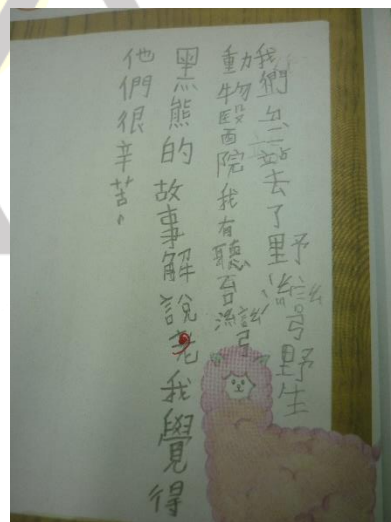 我們第一站去了野灣野生
動物醫院我有聽台灣
黑熊的故事解說我覺得
他們很辛苦。